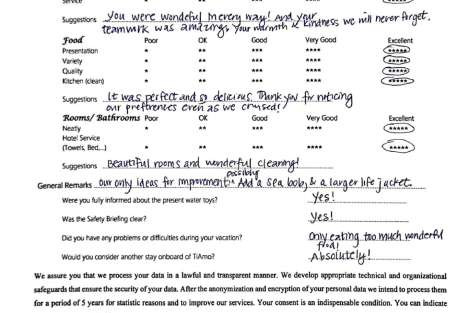 Service
Suggestions You were wondeful merery way! And your
teamwork was amazing. Your warmth & kindness we will never forget.
Food Poor OK Good Very Good Excellent
Presentation * ** *** **** *****
Variety * ** *** **** *****
Quality * ** *** **** *****
Kitchen (clean) * ** *** **** *****
Suggestions It was perfect and so delicious. Thank you for noticing
our preferences even as we cruised!
Rooms/ Bathrooms Poor OK Good Very Good Excellent
Neatly * ** *** **** *****
Hotel Service
(Towels, Bed,..) * ** *** **** *****
Suggestions Beautiful rooms and wonderful cleaning!
possibly
General Remarks Our only ideas for improvement: Add a sea bob, & a larger life jacket.
Were you fully informed about the present water toys? Yes!
Was the Safety Briefing clear? Yes!
Did you have any problems or difficulties during your vacation? Only eating too much wonderful
food!
Would you consider another stay onboard of TiAmo? Absolutely!
We assure you that we process your data in a lawful and transparent manner. We develop appropriate technical and organizational
safeguards that ensure the security of your data. After the anonymization and encryption of your personal data we intend to process them
for a period of 5 years for statistic reasons and to improve our services. Your consent is an indispensable condition. You can indicate